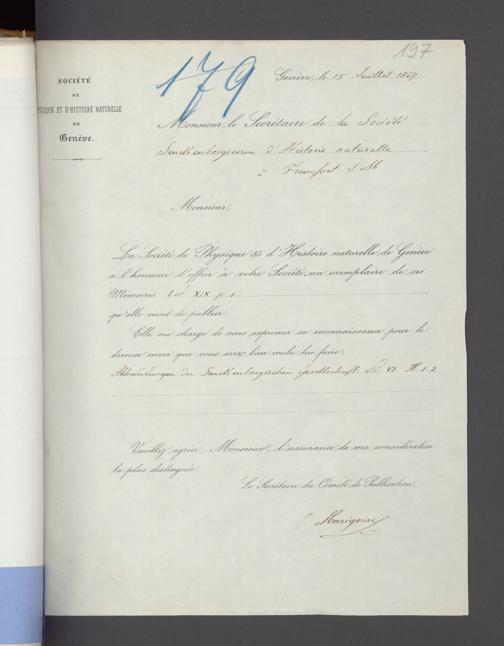 197
179
SOCIÉTÉ
DE
PHYSIQUE ET D'HISTOIRE NATURELLE
DE
Genève.
Genève, le 15 Juillet 1867
Monsieur le Secrétaire de la Société
Senckenbergienne d'Histoire naturelle
à Francfort s/M
Monsieur,
La Société de Physique & d'Histoire naturelle de Genève
a l'honneur d'offrir à votre Société un exemplaire de ses
Mémoires Vol. XIX p. 1
qu'elle vient de publier.
Elle me charge de vous exprimer sa reconnaissance pour le
dernier envoi que vous avez bien voulu lui faire.
Abhandlungen der Senckenbergischen Gesellschaft. Bd VI. H. 1-2
Veuillez agréer, Monsieur, l'assurance de ma considération
la plus distinguée
Le Secrétaire du Comité de Publication,
C. Marignac